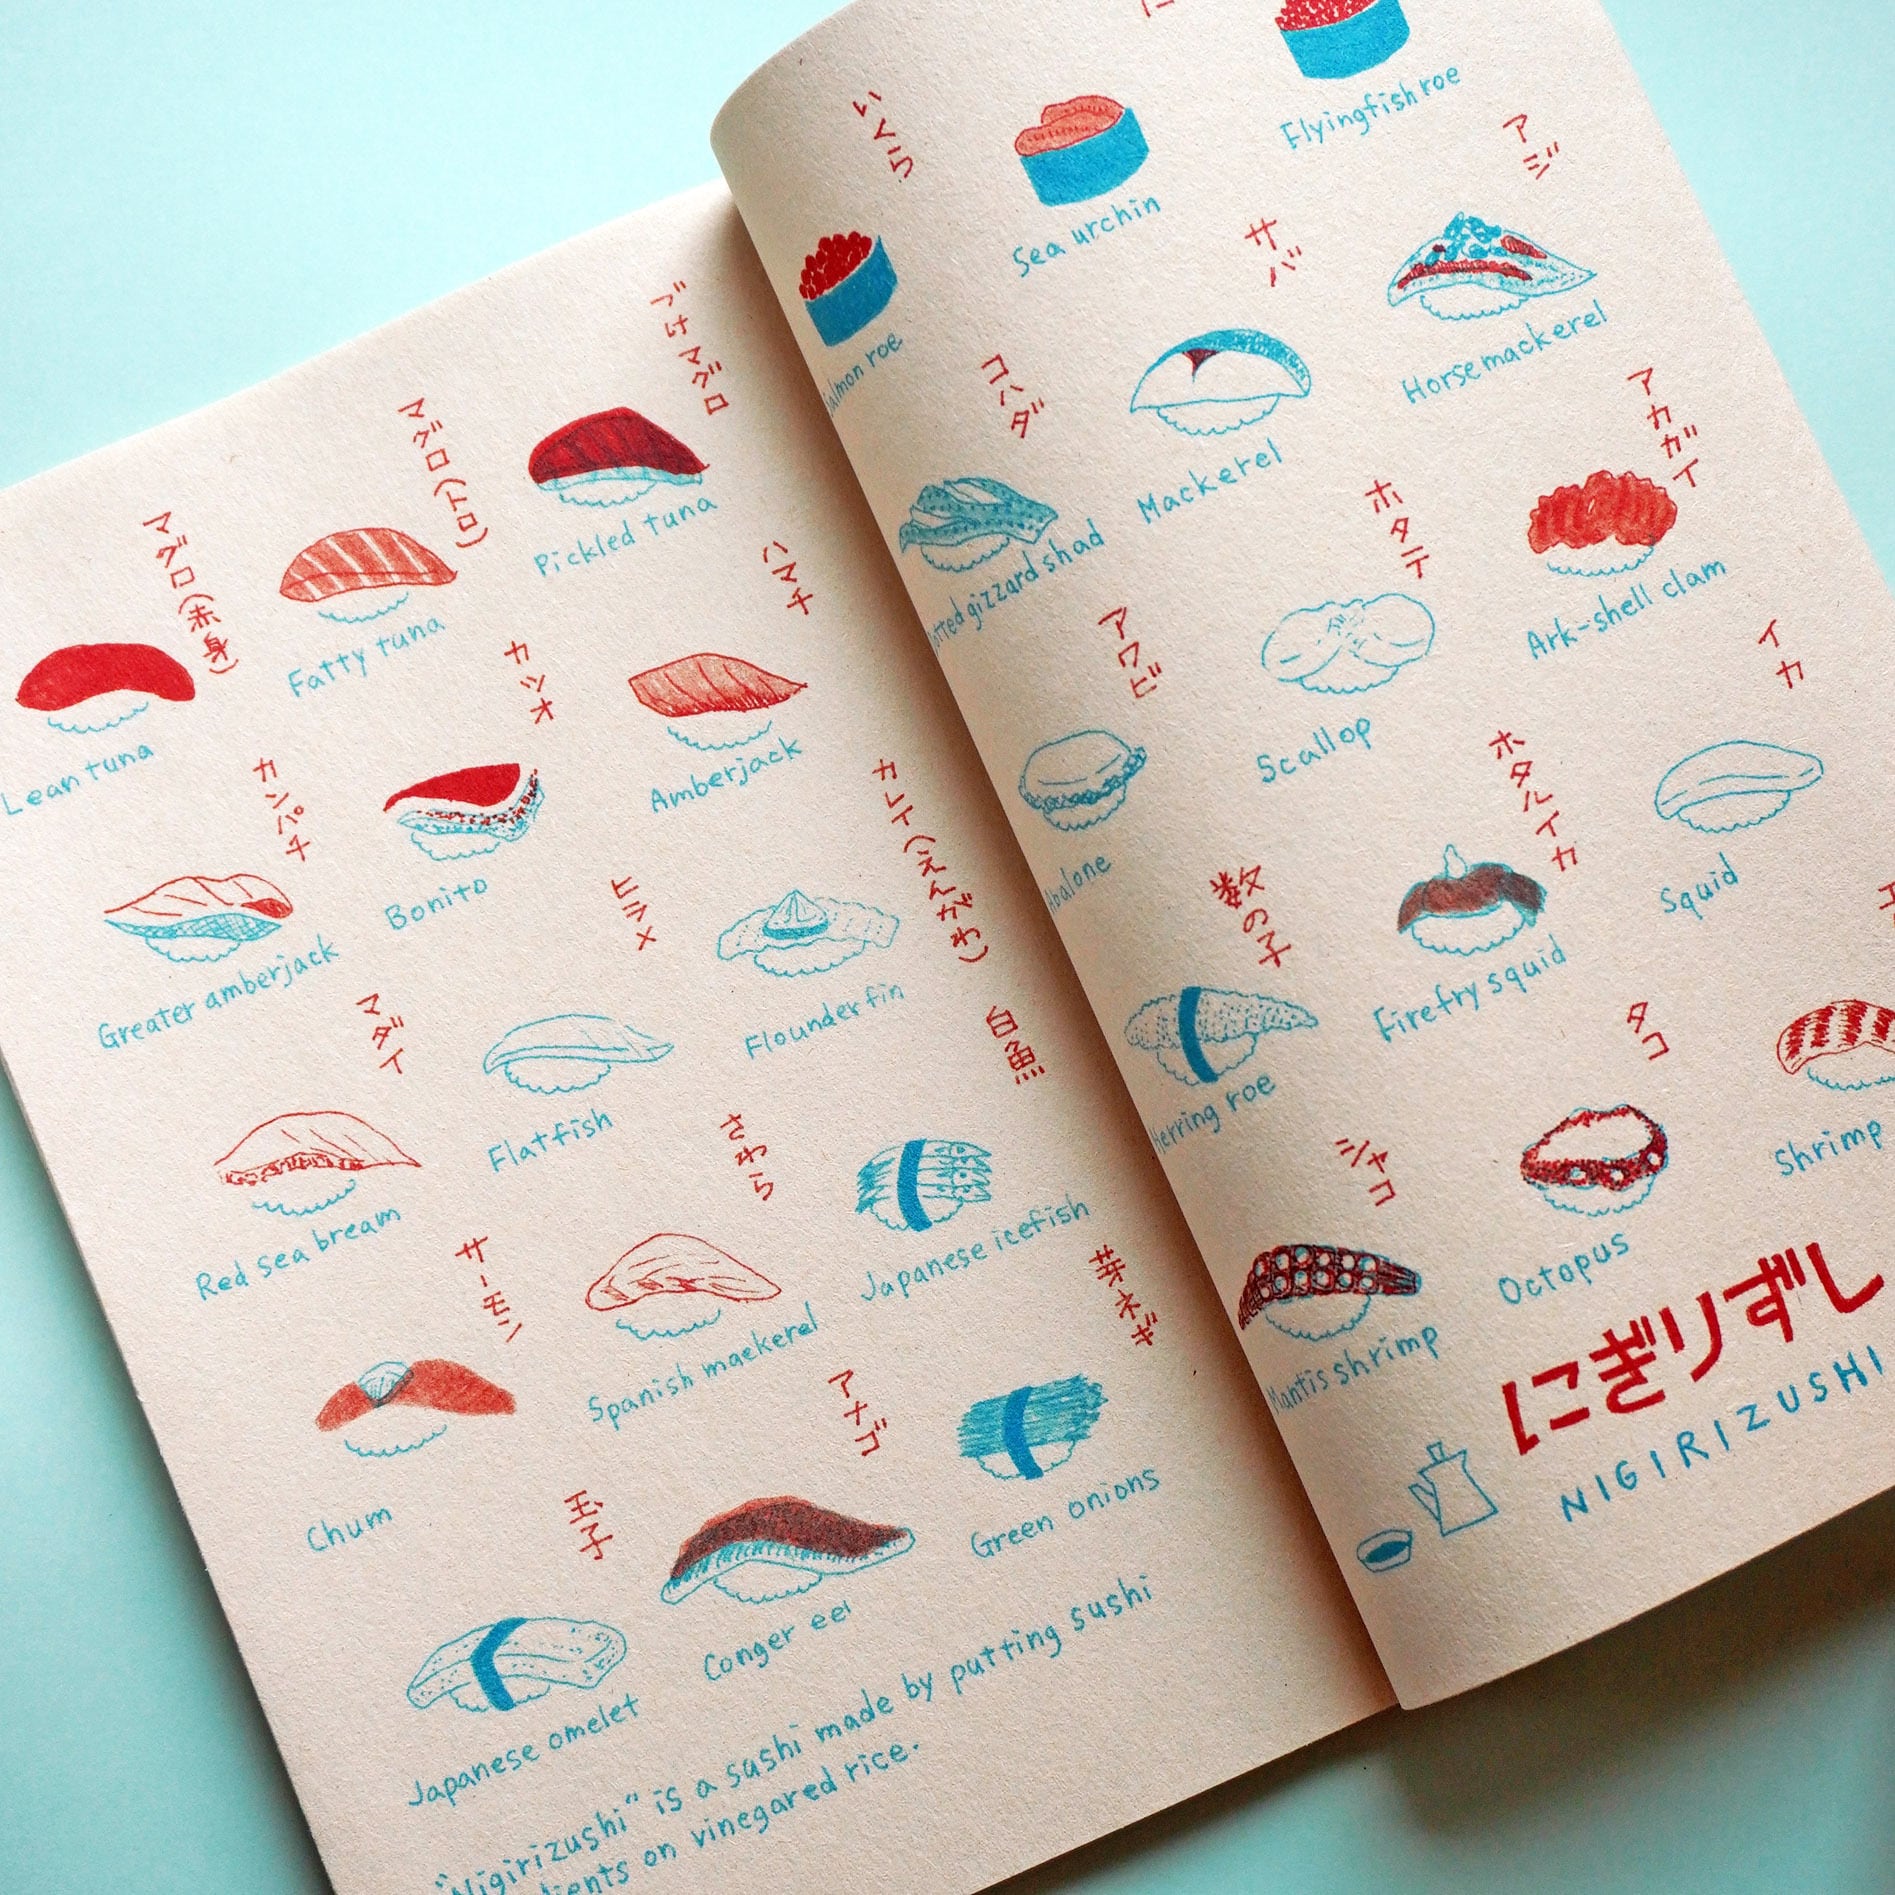 マグロ(赤身)
Lean tuna
マグロ(トロ)
Fatty tuna
づけマグロ
Pickled tuna
カンパチ
Greater amberjack
カツオ
Bonito
ハマチ
Amberjack
マダイ
Red sea bream
ヒラメ
Flatfish
カレイ(えんがわ)
Flounder fin
サーモン
Chum
さわら
Spanish maekerel
白魚
Japanese icefish
玉子
Japanese omelet
アナゴ
Conger eel
芽ネギ
Green onions
"Nigirizushi" is a sushi made by putting sushi
on vinegared rice.
いくら
Salmon roe
Sea urchin
Flyingfish roe
コハダ
gizzard shad
サバ
Mackerel
アジ
Horse mackerel
アワビ
Abalone
ホタテ
Scallop
アカガイ
Ark-shell clam
数の子
Herring roe
ホタルイカ
Firefry squid
イカ
Squid
シャコ
Mantis shrimp
タコ
Octopus
Shrimp
にぎりずし
NIGIRIZUSHI